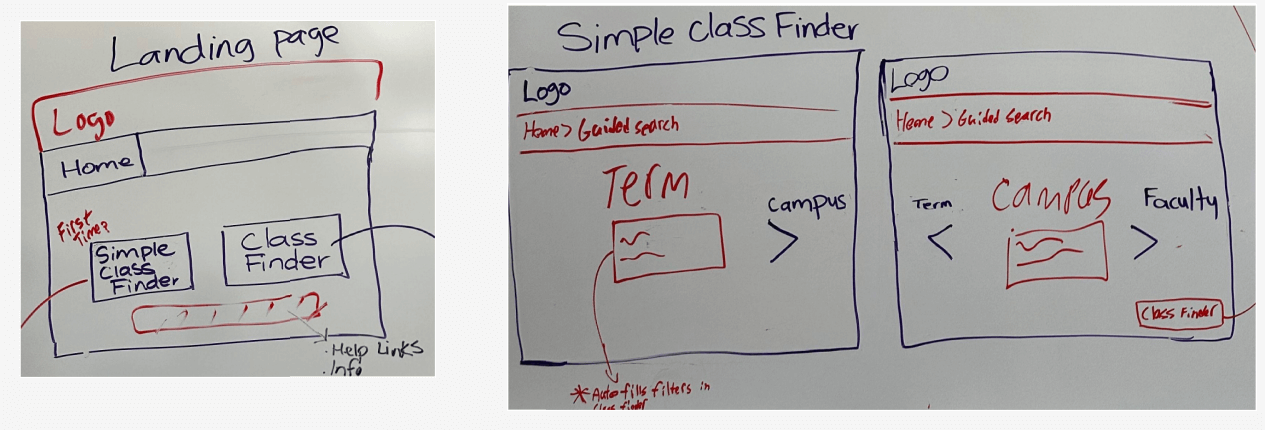 Landing page
Logo
Home
First
Time?
Simple
Class
Finder
Class
Finder
.Help Links
.Info
Simple Class Finder
Logo
Home > Guided search
Term
Campus
* Auto-fills filters in
Class finder
Logo
Home > Guided search
Term
Campus
Faculty
Class Finder